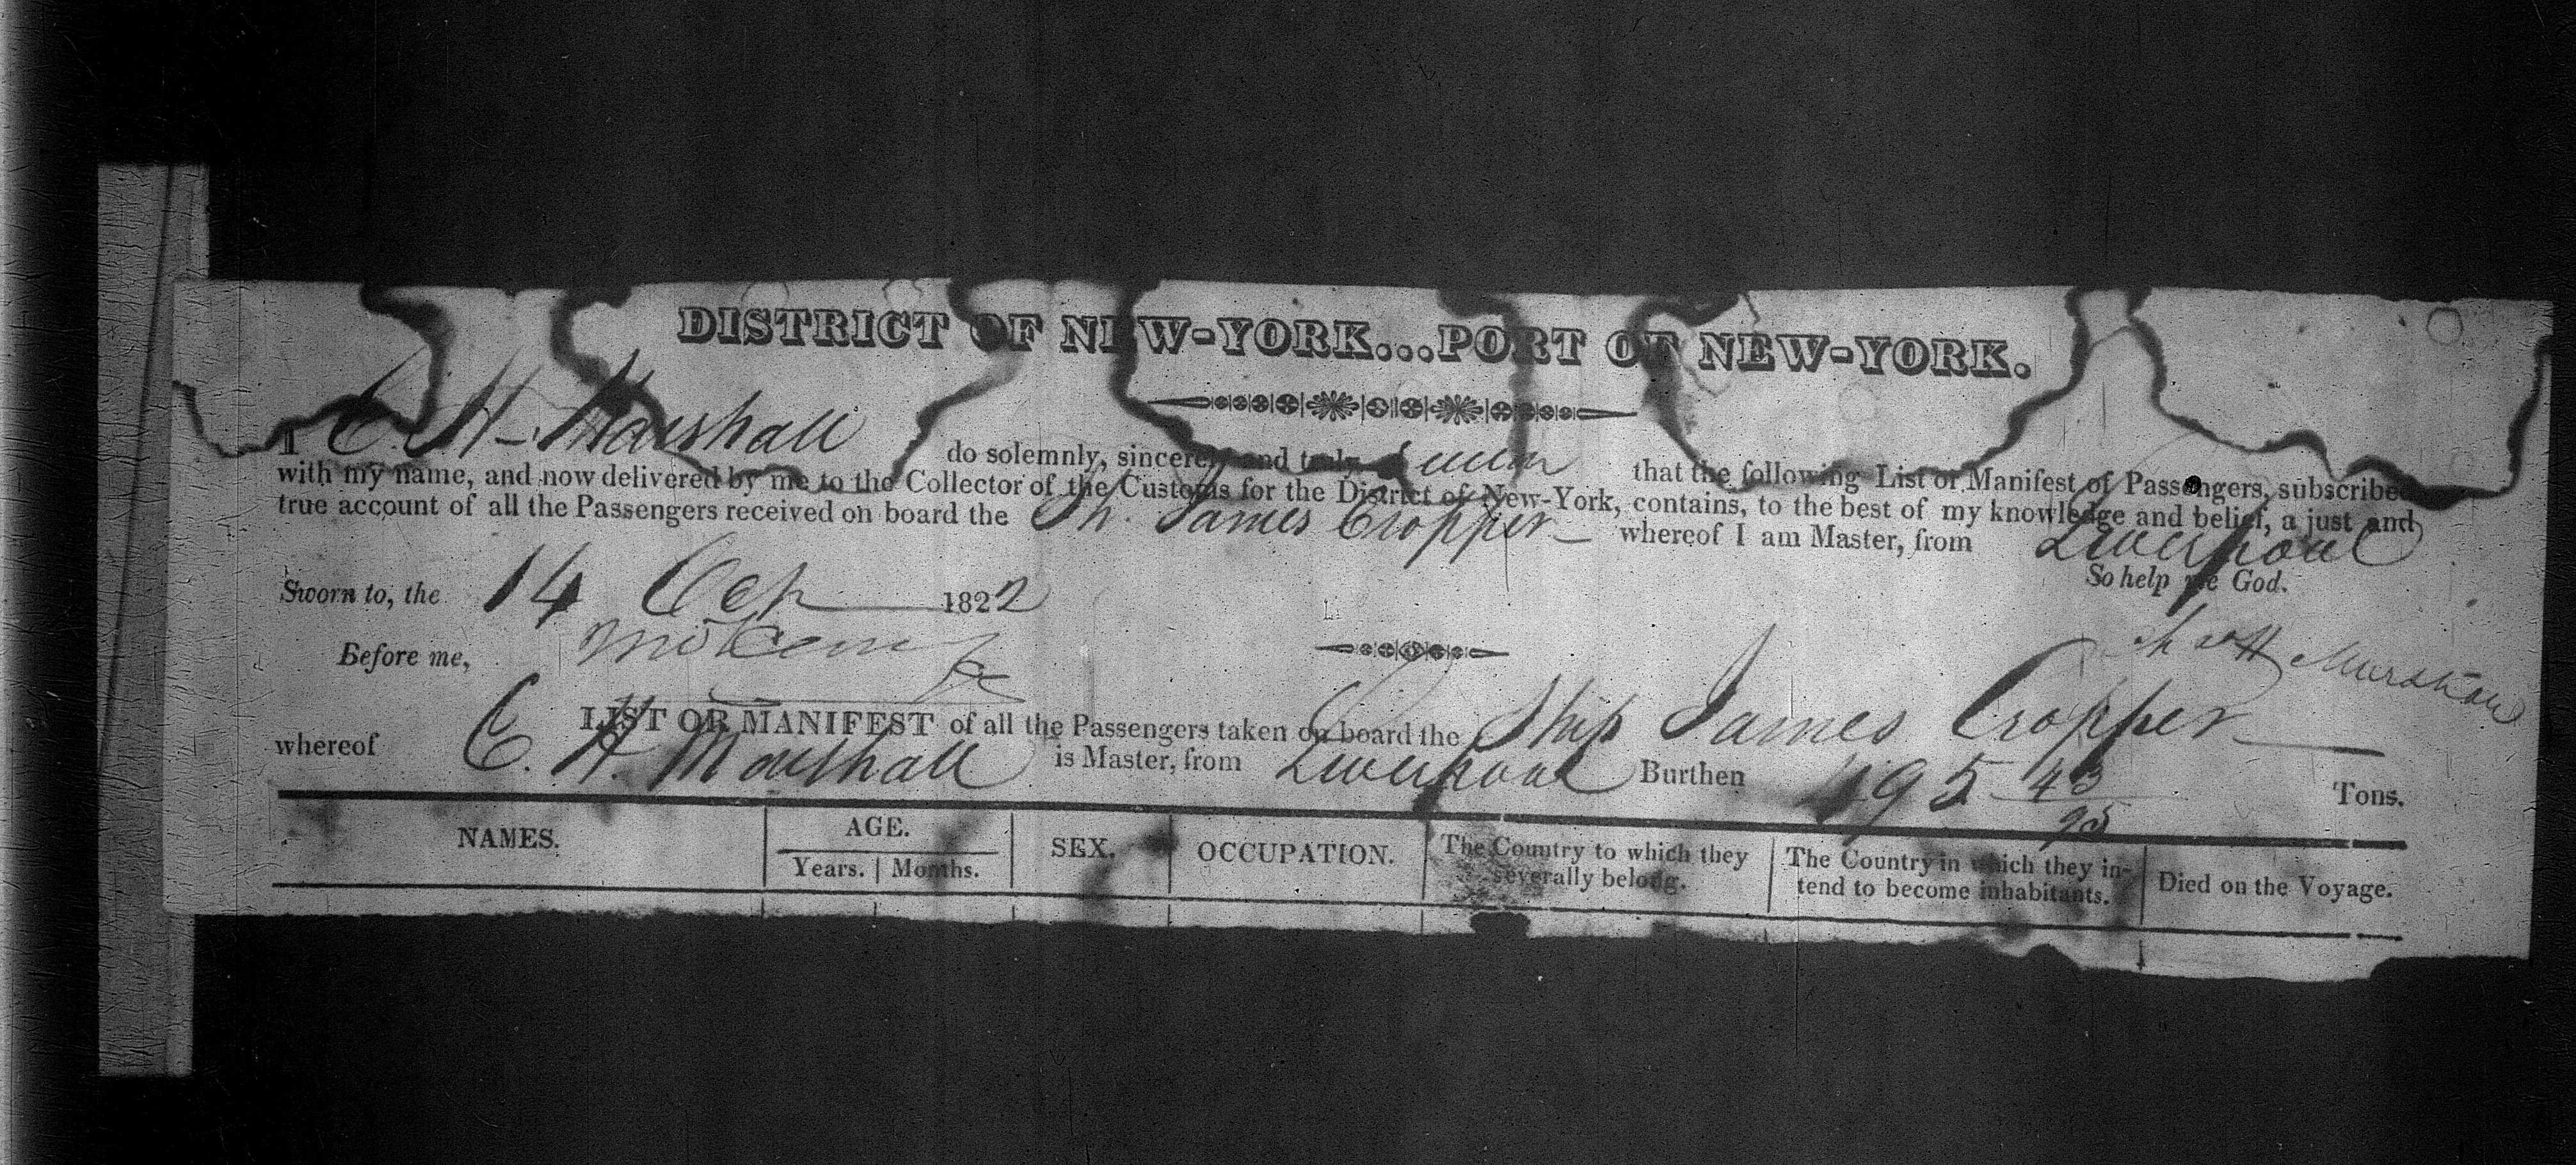 DISTRICT OF NEW-YORK...PORT OF NEW-YORK.
I C. H. Marshall do solemnly, sincerely and truly swear that the following List or Manifest of Passengers, subscribed
with my name, and now delivered by me to the Collector of the Customs for the District of New-York, contains, to the best of my knowledge and belief, a just and
true account of all the Passengers received on board the Sh. James Cropper whereof I am Master, from Liverpool
So help me God.
Sworn to, the 14 1822
Before me,
Marshall
LIST OR MANIFEST of all the Passengers taken on board the Ship James Cropper
whereof C. H. Marshall is Master, from Liverpool Burthen 495 43/95 Tons.
NAMES.
AGE.
Years. | Months.
SEX.
OCCUPATION.
The Country to which they
severally belong.
The Country in which they in-
tend to become inhabitants.
Died on the Voyage.